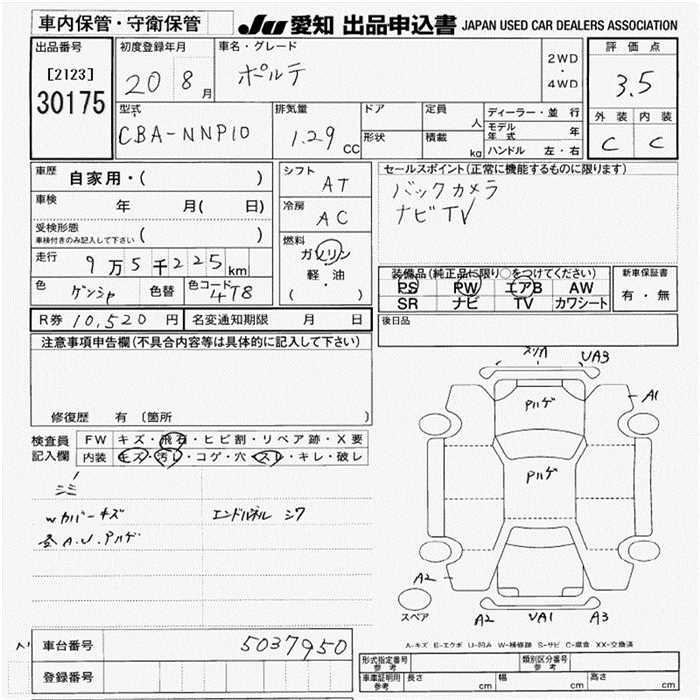 車内保管・守衛保管 JU 愛知 出品申込書 JAPAN USED CAR DEALERS ASSOCIATION
出品番号 初度登録年月 車名・グレード 2WD・4WD 評価点
[2123] 20 8月 ポルテ 3.5
30175
型式 排気量 ドア 定員 人 ディーラー・並行 外装 内装
CBA-NNP10 1.29 CC 形状 積載 kg モデル年式 年 C C
ハンドル 左・右
車歴 自家用・( ) シフト AT セールスポイント(正常に機能するものに限ります)
車検 年 月( 日) 冷房 AC バックカメラ
ナビTV
受検形態 車検付きのみ記入して下さい ( ) 燃料 ガソリン
走行 9万5千225km 軽・油 ( ) 装備品(純正品に限り○をつけてください) 新車保証書
色 ゲンシャ 色替 色コード 4T8 PS PW エアB AW 有・無
SR ナビ TV カワシート
R券 10,520円 名変通知期限 月 日 後日品
注意事項申告欄(不具合内容等は具体的に記入して下さい)
修復歴 有 〔箇所
UA3
A1
Pハゲ
Pハゲ
検査員記入欄 FW キズ・飛石・ヒビ割・リペア跡・X要
内装 キズ・汚レ・コゲ・穴・スレ・キレ・破レ
Wカバーキズ エンドパネル シワ
A.U.Pハゲ
A2
スペア A2 UA1 A3
A-キズ E-エクボ U-凹み W-補修跡 S-サビ C-腐食 XX-交換済
車台番号 5037950
登録番号
形式指定番号 参考 類別区分番号 参考
車庫証明用 参考 長さ cm 幅 cm 高さ cm